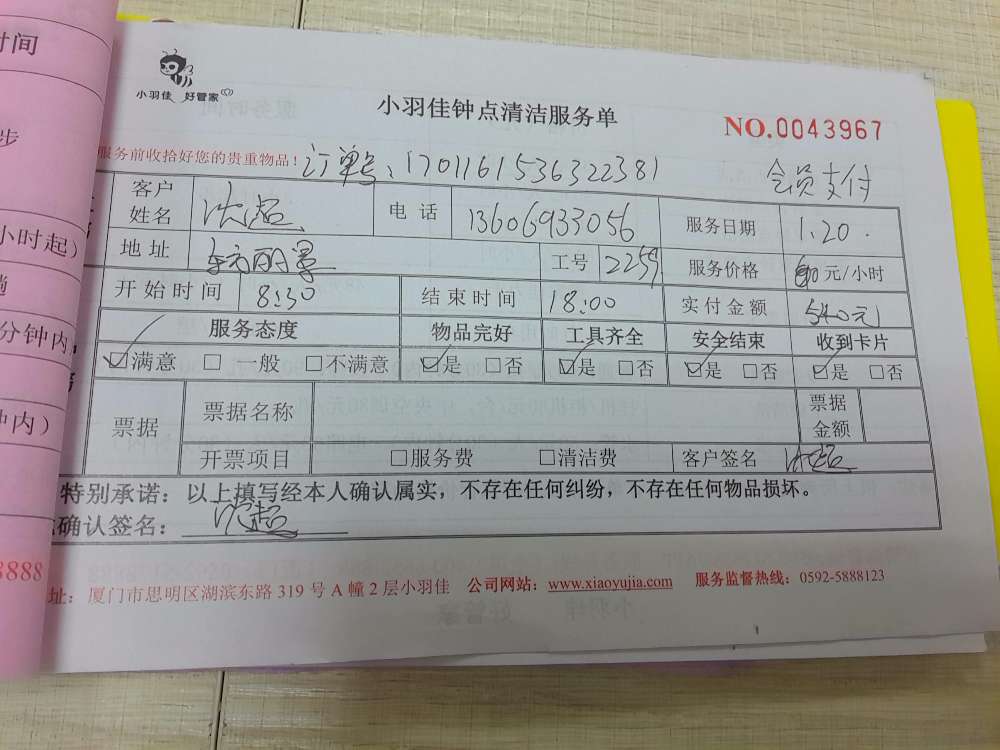 时间
步
小时起)
分钟内,
钟内)
8888
小羽佳 好管家
小羽佳钟点清洁服务单
NO.0043967
服务前收拾好您的贵重物品! 订单号:1701161536322381 会员支付
客户姓名 沈超 电话 13606933056 服务日期 1.20.
地址 东方丽景 工号 2259 服务价格 元/小时
开始时间 8:30 结束时间 18:00 实付金额 540元
服务态度 物品完好 工具齐全 安全结束 收到卡片
☑满意 □一般 □不满意 ☑是 □否 ☑是 □否 ☑是 □否 ☑是 □否
票据 票据名称 票据金额
开票项目 □服务费 □清洁费 客户签名 沈超
特别承诺:以上填写经本人确认属实,不存在任何纠纷,不存在任何物品损坏。
确认签名: 沈超
址:厦门市思明区湖滨东路 319 号 A 幢 2 层小羽佳 公司网站:www.xiaoyujia.com 服务监督热线:0592-5888123